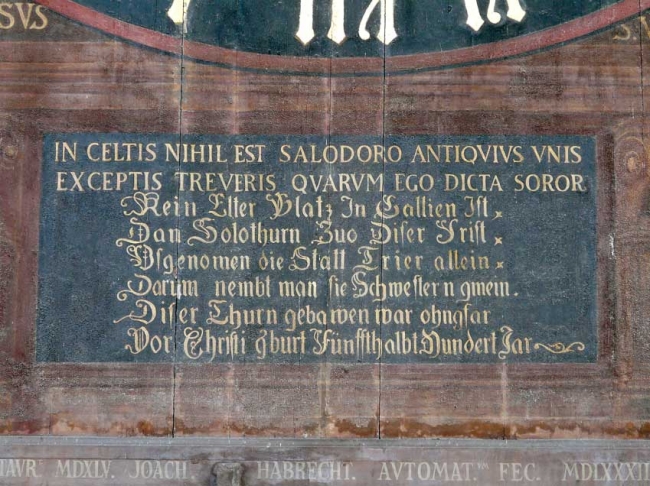 SVS
IN CELTIS NIHIL EST SALODORO ANTIQVIVS VNIS
EXCEPTIS TREVERIS QVARVM EGO DICTA SOROR
Kein Elter Platz In Gallien Ist
Dan Solothurn Zuo Diser Frist
Usgenomen die Statt Trier allein
Darum nembt man sie Schwestern gmein.
Diser Thurn gebawen war ohngfar
Vor Christi Gburt Fünffthalb Hundert Jar
MDXLV. JOACH. HABRECHT. AVTOMAT.um FEC. MDLXXXII